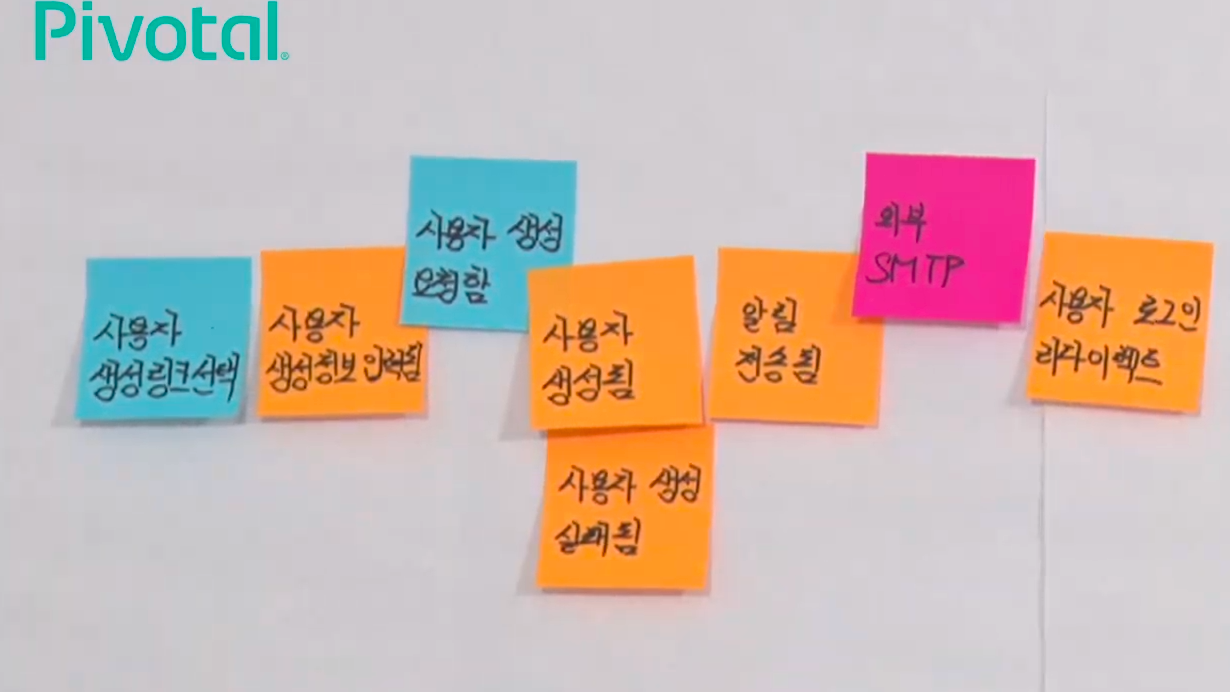 Pivotal
사용자
생성링크선택
사용자
생성정보입력됨
사용자 생성
요청함
사용자
생성됨
사용자 생성
실패됨
알림
전송됨
외부
SMTP
사용자 로그인
리다이렉트